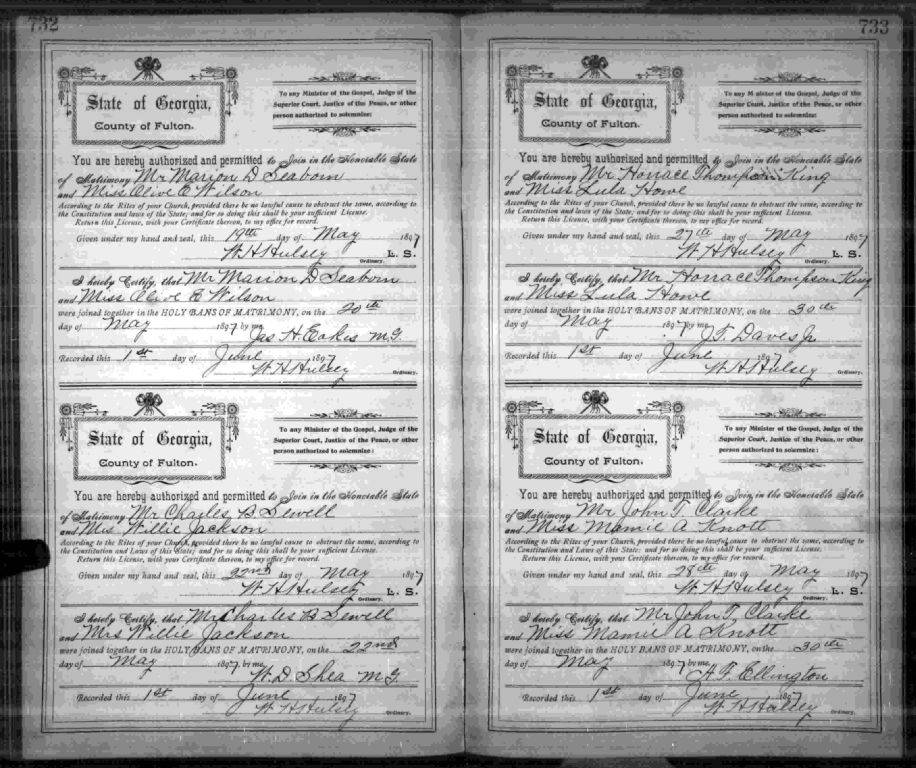 732
State of Georgia,
County of Fulton.
To any Minister of the Gospel, Judge of the
Superior Court, Justice of the Peace, or other
person authorized to solemnize:
You are hereby authorized and permitted to Join in the Honorable State
of Matrimony Mr Marion D Seaborn
and Miss Olive E Wilson
According to the Rites of your Church, provided there be no lawful cause to obstruct the same, according to
the Constitution and laws of the State; and for so doing this shall be your sufficient License.
Return this License, with your Certificate thereon, to my office for record.
Given under my hand and seal, this 19th day of May 1897
W H Hulsey L. S.
Ordinary.
I hereby Certify, that Mr Marion D Seaborn
and Miss Olive E Wilson
were joined together in the HOLY BANS OF MATRIMONY, on the 20th
day of May 1897 by me,
Jas H. Eakes M.G.
Recorded this 1st day of June 1897
W H Hulsey
Ordinary.
State of Georgia,
County of Fulton.
To any Minister of the Gospel, Judge of the
Superior Court, Justice of the Peace, or other
person authorized to solemnize:
You are hereby authorized and permitted to Join in the Honorable State
of Matrimony Mr Charles B Sewell
and Mrs Willie Jackson
According to the Rites of your Church, provided there be no lawful cause to obstruct the same, according to
the Constitution and Laws of this State; and for so doing this shall be your sufficient License.
Return this License, with your Certificate thereon, to my office for record.
Given under my hand and seal, this 22nd day of May 1897
W H Hulsey L. S.
Ordinary.
I hereby Certify, that Mr Charles B Sewell
and Mrs Willie Jackson
were joined together in the HOLY BANS OF MATRIMONY, on the 22nd
day of May 1897 by me,
W. D Shea M.G.
Recorded this 1st day of June 1897
W H Hulsey
Ordinary.
733
State of Georgia,
County of Fulton.
To any Minister of the Gospel, Judge of the
Superior Court, Justice of the Peace, or other
person authorized to solemnize:
You are hereby authorized and permitted to Join in the Honorable State
of Matrimony Mr Horrace Thompson King
and Miss Lula Howe
According to the Rites of your Church, provided there be no lawful cause to obstruct the same, according to
the Constitution and laws of the State; and for so doing this shall be your sufficient License.
Return this License, with your Certificate thereon, to my office for record.
Given under my hand and seal, this 27th day of May 1897
W H Hulsey L. S.
Ordinary.
I hereby Certify, that Mr Horrace Thompson King
and Miss Lula Howe
were joined together in the HOLY BANS OF MATRIMONY, on the 30th
day of May 1897 by me,
J. T. Daves Jr
Recorded this 1st day of June 1897
W H Hulsey
Ordinary.
State of Georgia,
County of Fulton.
To any Minister of the Gospel, Judge of the
Superior Court, Justice of the Peace, or other
person authorized to solemnize:
You are hereby authorized and permitted to Join in the Honorable State
of Matrimony Mr John T. Clarke
and Miss Mamie A Knott
According to the Rites of your Church, provided there be no lawful cause to obstruct the same, according to
the Constitution and Laws of this State; and for so doing this shall be your sufficient License.
Return this License, with your Certificate thereon, to my office for record.
Given under my hand and seal, this 28th day of May 1897
W H Hulsey L. S.
Ordinary.
I hereby Certify, that Mr John T. Clarke
and Miss Mamie A Knott
were joined together in the HOLY BANS OF MATRIMONY, on the 30th
day of May 1897 by me,
A. F. Ellington
Recorded this 1st day of June 1897
W H Hulsey
Ordinary.